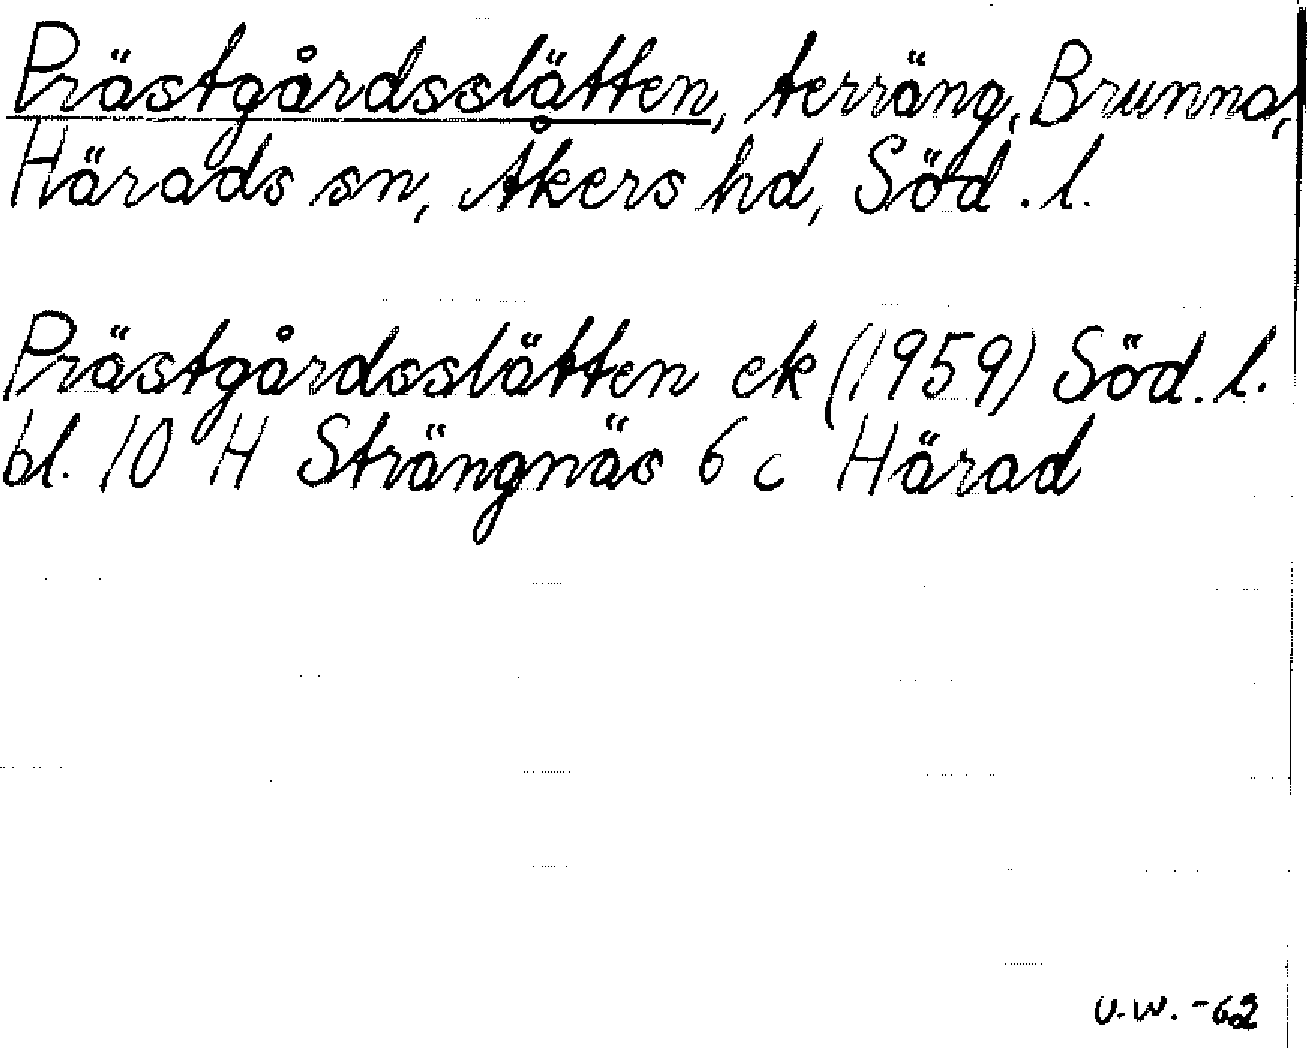 Prästgårdsslätten, terräng, Brunna,
Härads sn, Åkers hd, Söd. l.
Prästgårdsslätten ek (1959) Söd. l.
bl. 10 H Strängnäs 6 c Härad
U.W. -62